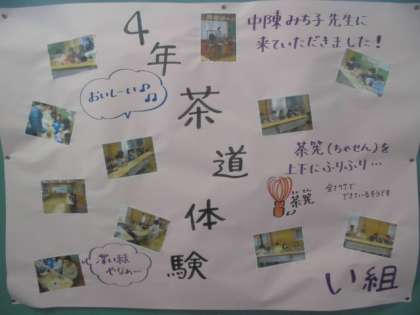 4年
茶道体験
中陳みち子先生に
来ていただきました!
おいしーい♪♪
茶筅(ちゃせん)を
上下にふりふり…
茶筅
い組